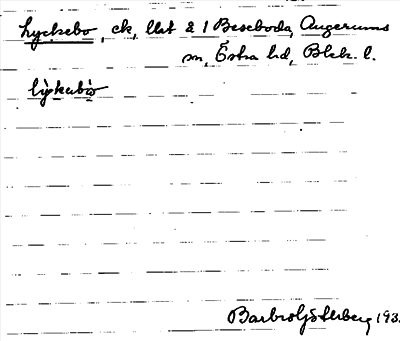 Lyckebo, ck, Uat å 1 Beseboda, Augerums
sn, Östra hd, Blek. l.
lyckabo
Barbro Ljsterberg 193